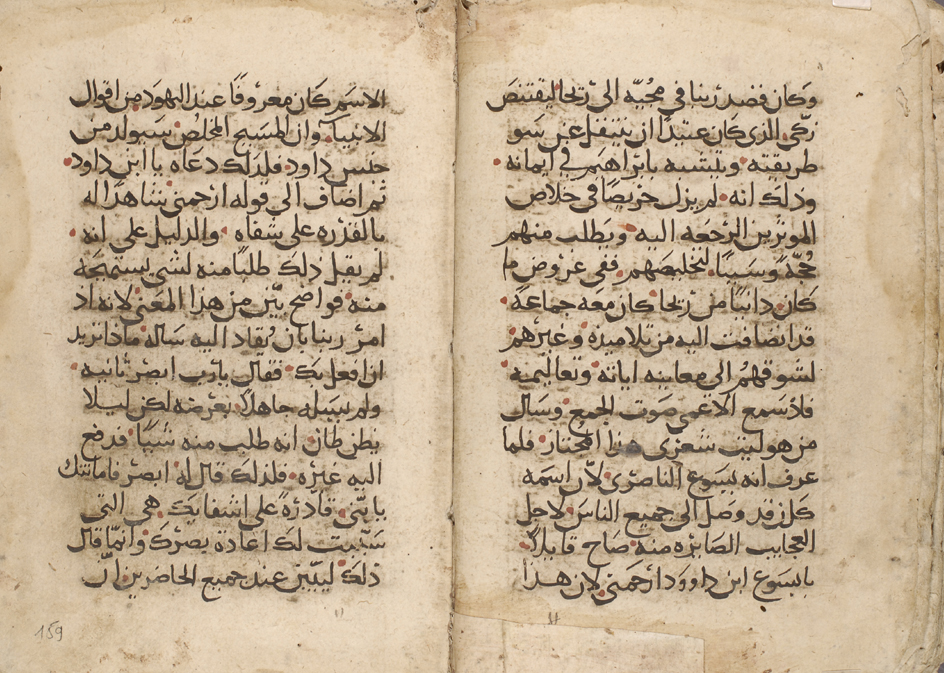 وكان قصد ربنا في مجيه الى ريحا ليقتنص
زكى الذي كان عتيدًا ان ينتقل عن سو
طريقته ويتشبه بابراهيم في ايمانه
وذلك انه لم يزل حريصًا في خلاص
الموثرين الرجعه اليه ويطلب منهم
حُجّة وسببًا لتخليصهم ففى عروض ما
كان دانيًا من ريحا كان معه جماعة
قد انضافت اليه من تلاميذه وغيرهم
لشوقهم الى معاينه اياته وتعاليمه
فلما سمع الاعمى صوت الجمع وسال
من هو ليت شعرى هذا المجتاز فلما
عرف انه يسوع الناصرى لان اسمه
كان قد وصل الى جميع الناس لاجل
العجايب الصايره منه صاح قايلاً
يايسوع ابن داوود ارحمنى لان هذا
الاسم كان معروفًا عند اليهود من اقوال
الانبيا وان المسيح المخلص سيولد من
جنس داود فلذلك دعاه يا ابن داود
ثم اضاف الى قوله ارحمنى شاهدًا له
بالقدره على شفاه والدليل على انه
لم يقبل ذلك طلبًا منه لشي يستميحه
منه فواضح بيّن من هذا المعنى لانه اذ
امر ربنا بان يُقاد اليه ساله ماذا تريد
ان افعل بك فقال يارب ابصر ثانيه
ولم يسله جاهلاً بغرضه لكن ليلا
يظن ظان انه طلب منه شيًا فدفع
اليه غيره فلذلك قال له ابصر فامانتك
بانّي قادرة على اشفايك هي التي
سببت لك اعادة بصرك وانما قال
ذلك ليبيّن عند جميع الحاضرين ان
159